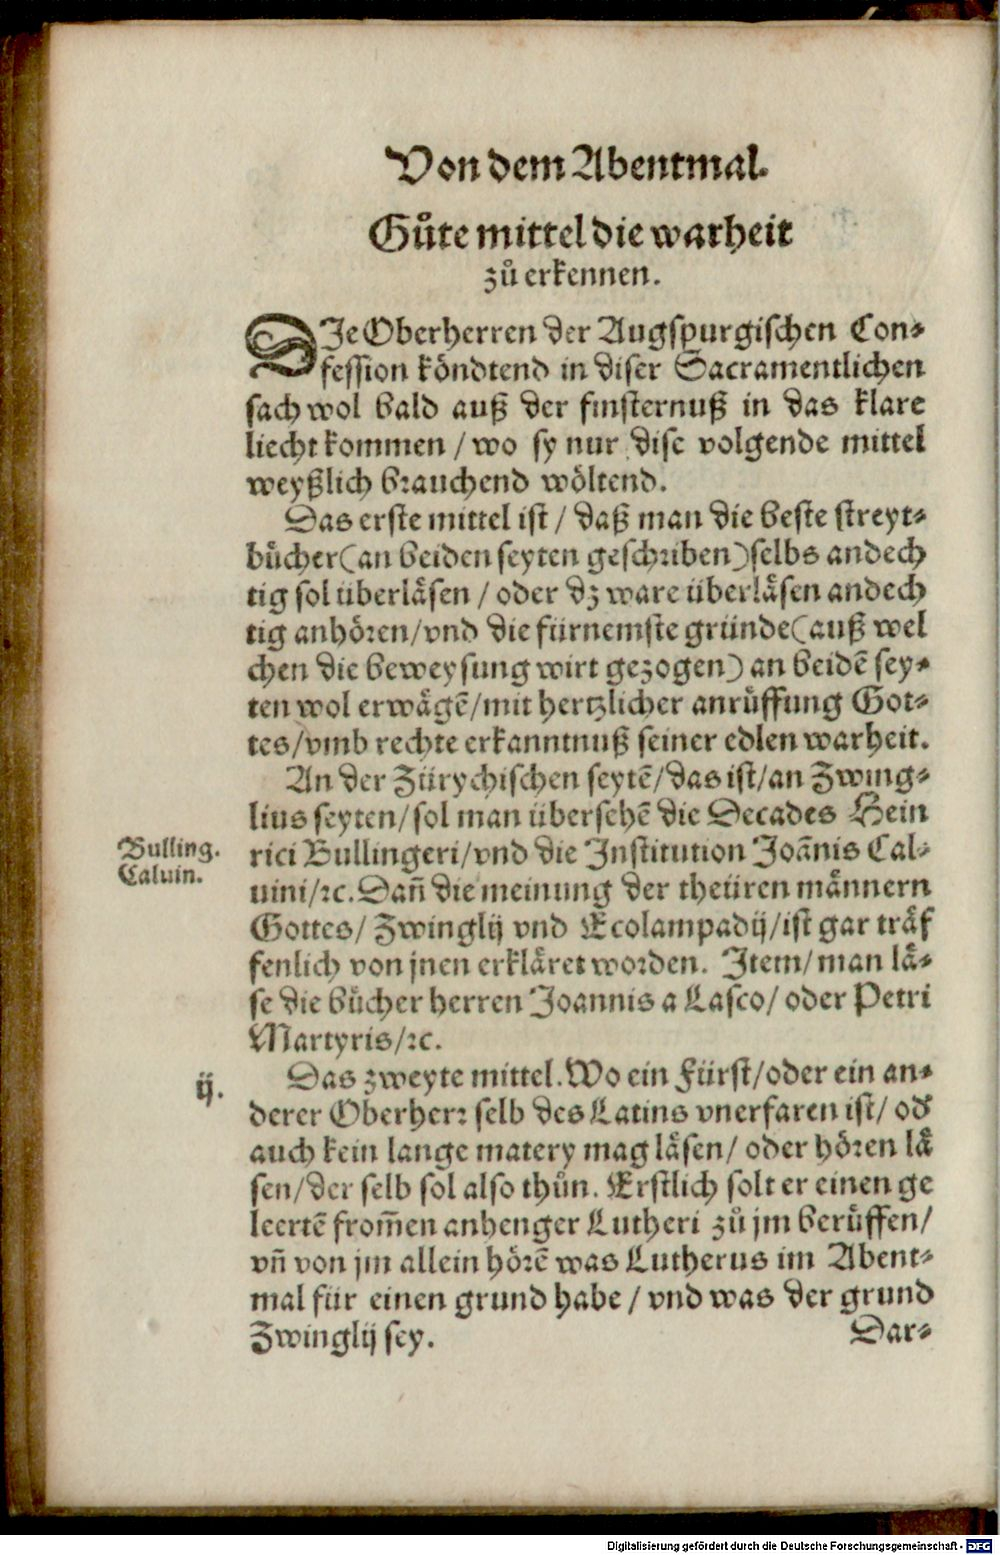 Von dem Abentmal.
Gůte mittel die warheit
zů erkennen.
DJe Oberherren der Augspurgischen Con⸗
fession köndtend in diser Sacramentlichen
sach wol bald auß der finsternuß in das klare
liecht kommen / wo sy nur dise volgende mittel
weyßlich brauchend wöltend.
Das erste mittel ist / daß man die beste streyt⸗
bücher (an beiden seyten geschriben) selbs andech
tig sol überläsen / oder dz ware überläsen andech
tig anhören / vnd die fürnemste gründe (auß wel
chen die beweysung wirt gezogen) an beidē sey⸗
ten wol erwägē / mit hertzlicher anrüffung Got⸗
tes / vmb rechte erkanntnuß seiner edlen warheit.
An der Zürychischen seytē / das ist / an Zwing⸗
lius seyten / sol man übersehē die Decades Hein
Bulling.
Caluin.
rici Bullingeri / vnd die Institution Joānis Cal⸗
uini / ꝛc. Dañ die meinung der theüren männern
Gottes / Zwinglij vnd Ecolampadij / ist gar träf
fenlich von jnen erkläret worden. Item / man lä⸗
se die bücher herren Joannis a Lasco / oder Petri
Martyris / ꝛc.
ij.
Das zweyte mittel. Wo ein Fürst / oder ein an⸗
derer Oberherr selb des Latins vnerfaren ist / od'
auch kein lange matery mag läsen / oder hören lä
sen / der selb sol also thůn. Erstlich solt er einen ge
leertē from̄en anhenger Lutheri zů jm berüffen /
vñ von jm allein hörē was Lutherus im Abent⸗
mal für einen grund habe / vnd was der grund
Zwinglij sey.
Dar⸗
Digitalisierung gefördert durch die Deutsche Forschungsgemeinschaft - DFG